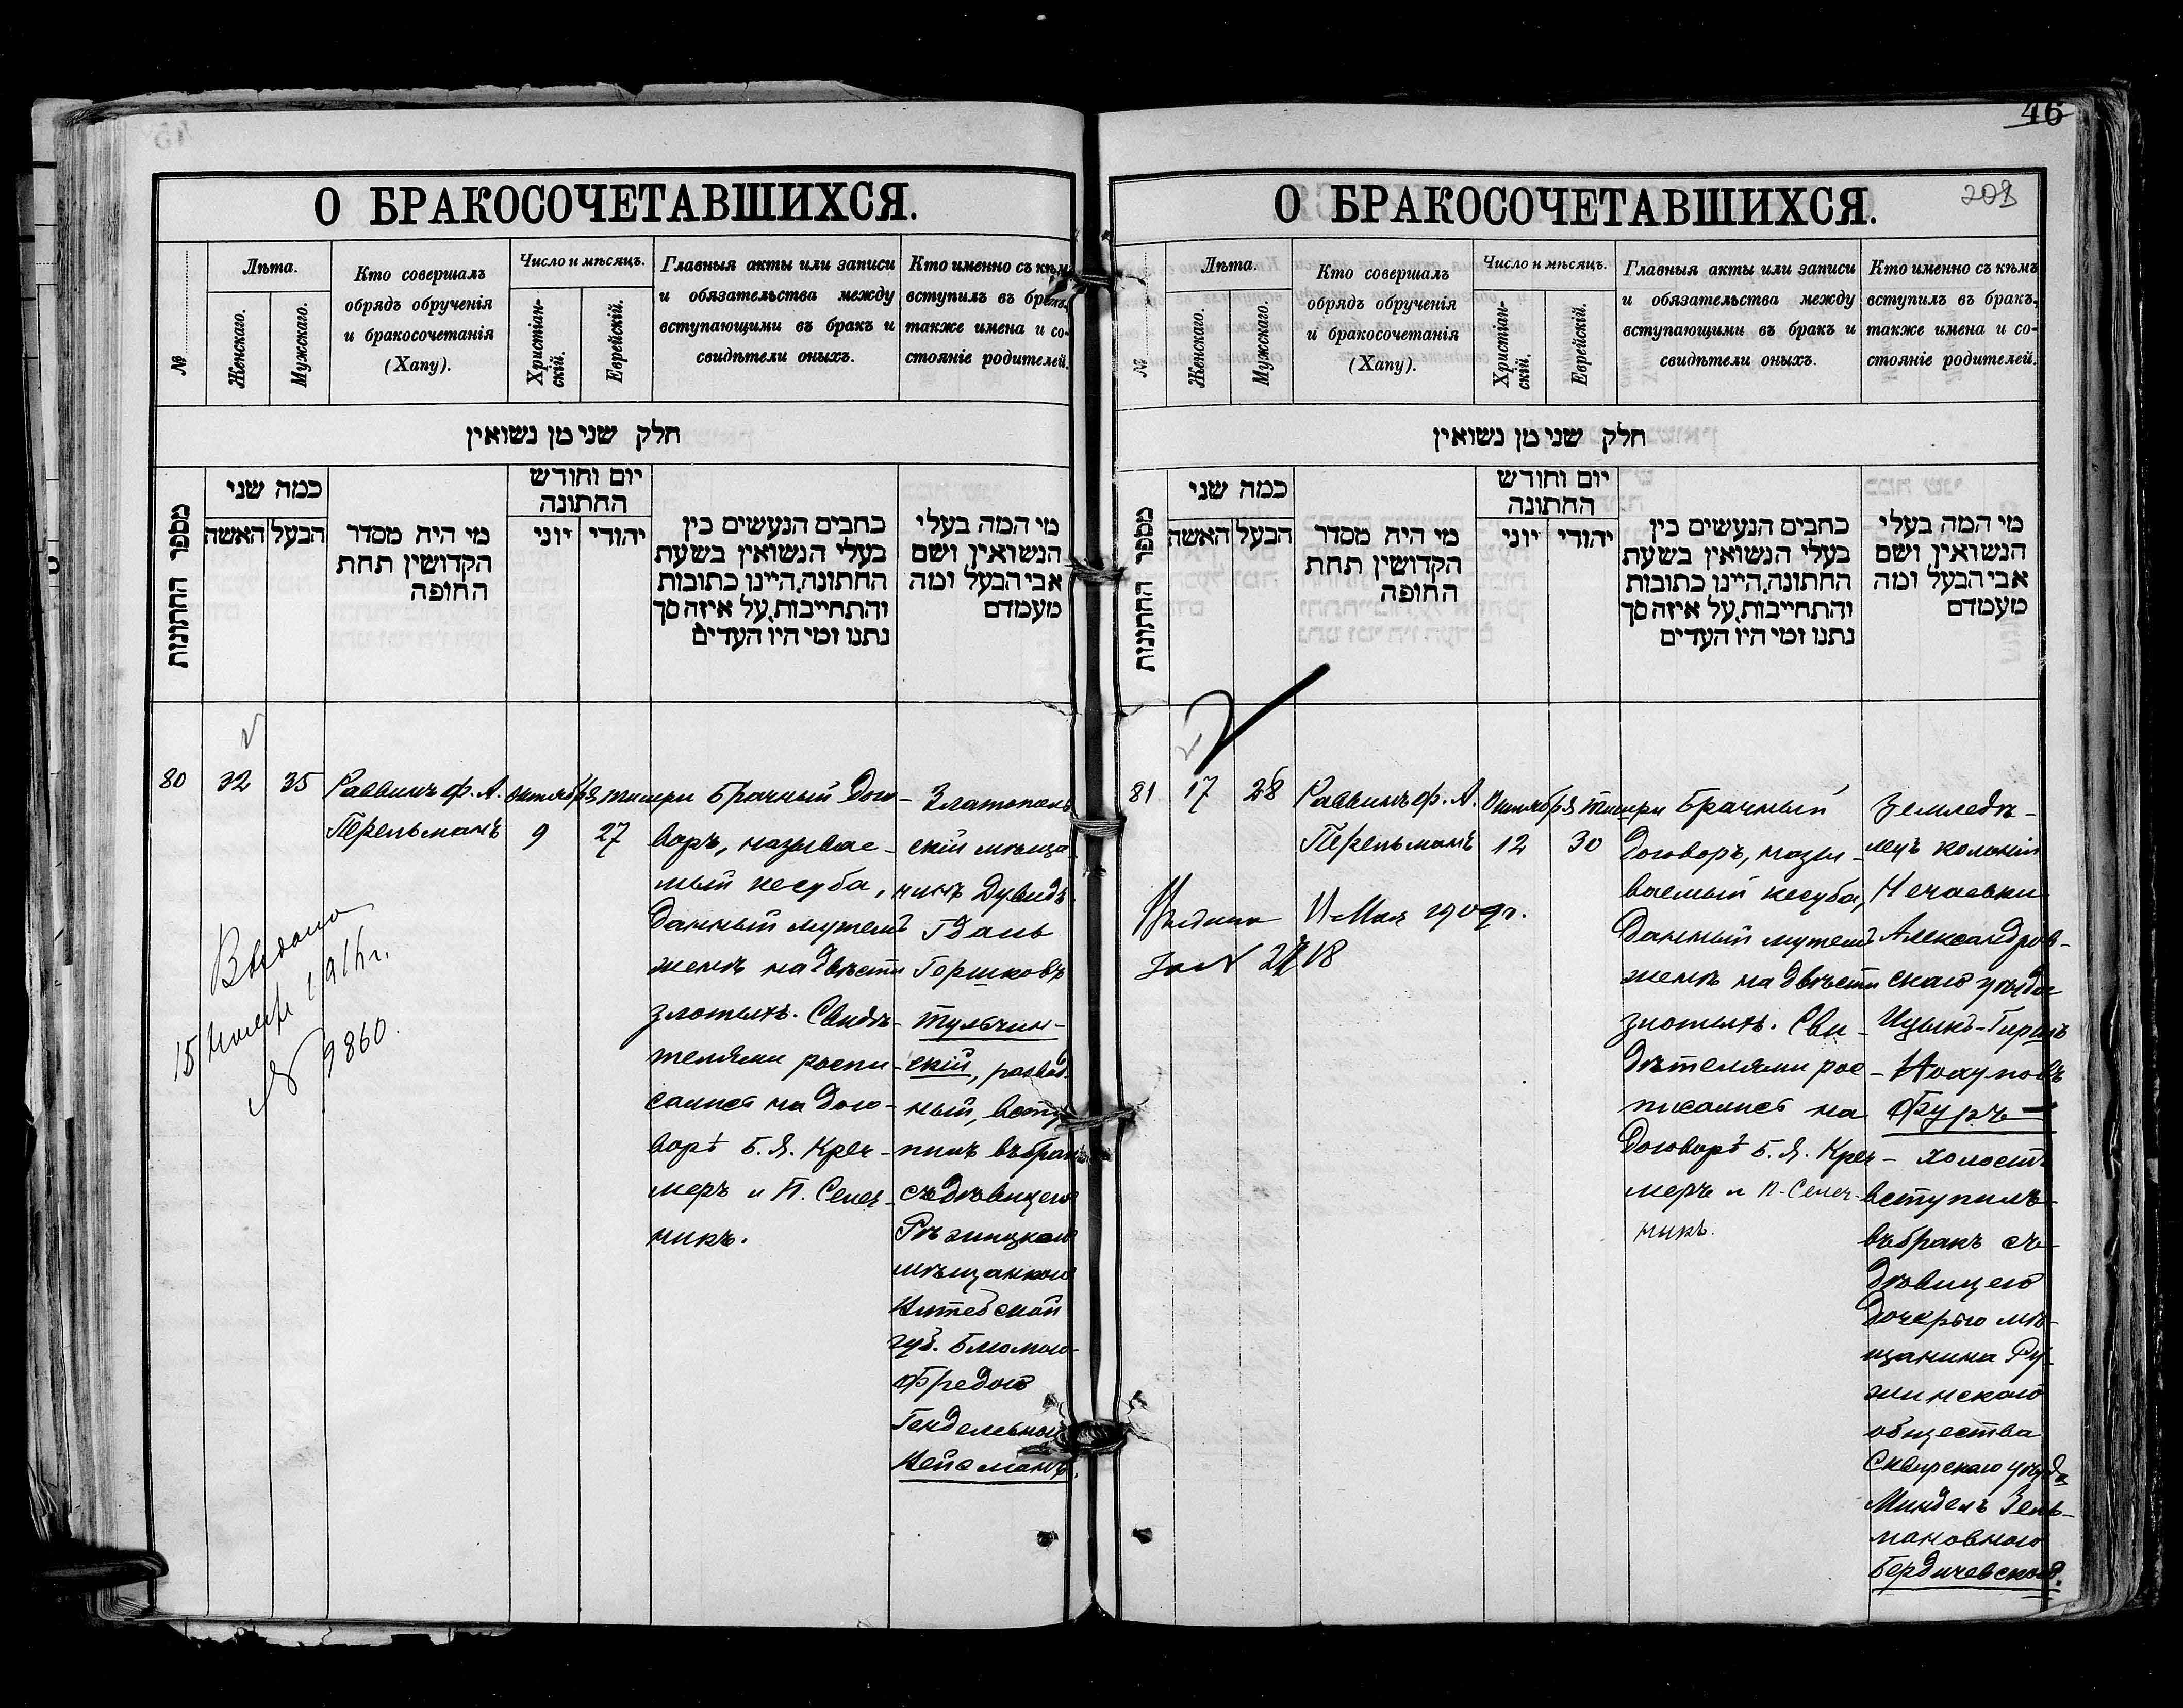 46
О БРАКОСОЧЕТАВШИХСЯ.
№
Лѣта.
Женскаго.
Мужскаго.
Кто совершалъ
обрядъ обрученія
и бракосочетанія
(Хапу).
Число и мѣсяцъ.
Христіан-
скій.
Еврейскій.
Главныя акты или записи
и обязательства между
вступающими въ бракъ и
свидѣтели оныхъ.
Кто именно съ кѣмъ
вступилъ въ бракъ,
также имена и со-
стояніе родителей.
חלק שני מן נשואין
מספר החתונות
כמה שני
האשה
הבעל
מי היה מסדר
הקדושין תחת
החופה
יום וחודש
החתונה
יוני
יהודי
כתבים הנעשים בין
בעלי הנשואין בשעת
החתונה, היינו כתובות
והתחייבות, על איזה סך
נתנו ומי היו העדים
מי המה בעלי
הנשואין ושם
אבי הבעל ומה
מעמדם
80
32
35
Раввинъ Ф. А.
Перельманъ
Октября
9
Тишри
27
Брачный Дого-
воръ, называе-
мый кесуба,
данный мужемъ
женѣ на двѣсти
злотыхъ. Свидѣ-
телями роспи-
сались на дого-
ворѣ Б. Я. Креч-
меръ и П. Селец-
никъ.
Златополь-
скій мѣща-
нинъ Дувидъ
Гдаль
Гершковъ
Тульчин-
скій, развед-
ный, всту-
пилъ въ бракъ
съ дѣвицею
Рѣжицкою
мѣщанкою
Витебской
губ. Блюмою-
Фредою
Гендельевною
Нейсманъ.
Выдано
15 Ноября 1915 г.
№ 9860.
О БРАКОСОЧЕТАВШИХСЯ.
208
№
Лѣта.
Женскаго.
Мужскаго.
Кто совершалъ
обрядъ обрученія
и бракосочетанія
(Хапу).
Число и мѣсяцъ.
Христіан-
скій.
Еврейскій.
Главныя акты или записи
и обязательства между
вступающими въ бракъ и
свидѣтели оныхъ.
Кто именно съ кѣмъ
вступилъ въ бракъ,
также имена и со-
стояніе родителей.
חלק שני מן נשואין
מספר החתונות
כמה שני
האשה
הבעל
מי היה מסדר
הקדושין תחת
החופה
יום וחודש
החתונה
יוני
יהודי
כתבים הנעשים בין
בעלי הנשואין בשעת
החתונה, היינו כתובות
והתחייבות, על איזה סך
נתנו ומי היו העדים
מי המה בעלי
הנשואין ושם
אבי הבעל ומה
מעמדם
81
17
28
Раввинъ Ф. А.
Перельманъ
Октября
12
Тишри
30
Брачный
Договоръ, назы-
ваемый кесуба,
данный мужемъ
женѣ на двѣсти
злотыхъ. Сви-
дѣтелями рос-
писались на
договорѣ Б. Я. Креч-
меръ и П. Селец-
никъ.
Земледѣ-
лецъ колоніи
Нечаевки
Александров-
скаго уѣзда
Ицыкъ-Гиршъ
Нохумовъ
Фуръ
холостъ
вступилъ
въ бракъ съ
дѣвицею
дочерью мѣ-
щанина Ру-
жинскаго
общества
Сквирскаго уѣзда
Миндель Зель-
мановною
Бердичевской.
Выдано 11 Мая 1909 г.
за №